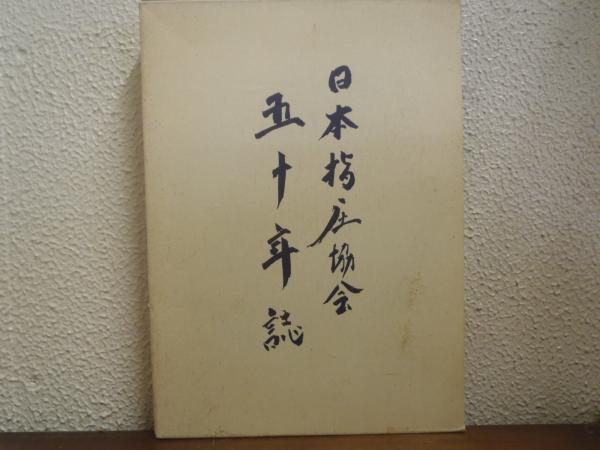 日本指圧協会
五十年誌